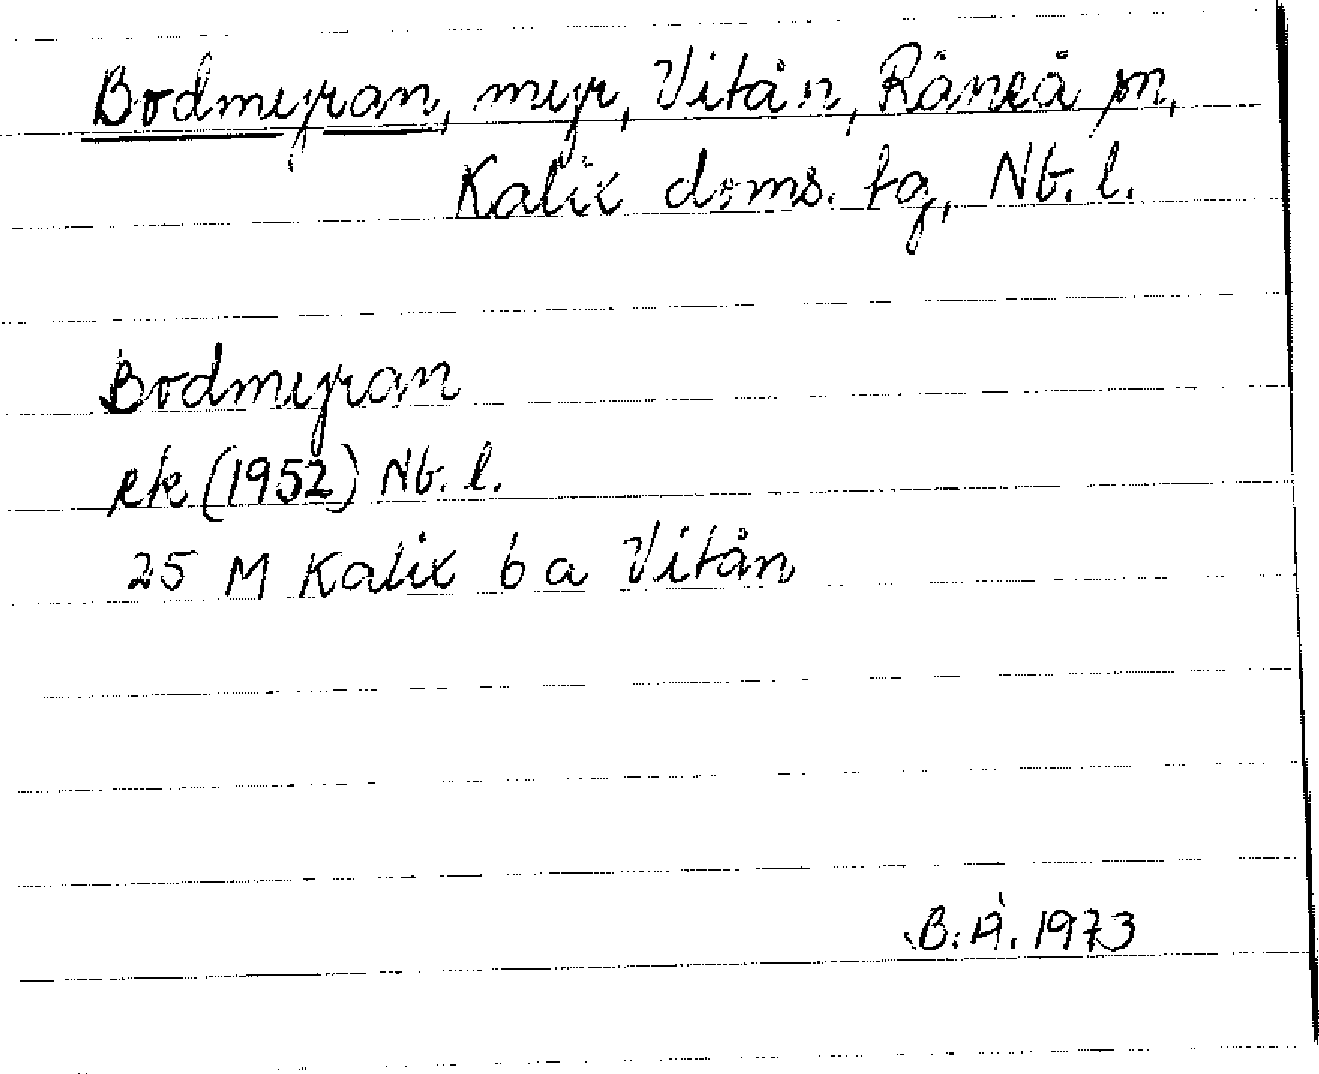 Bodmyran, myr, Vitån, Råneå sn,
Kalix doms. tg, Nb. l.
Bodmyran
rk (1952) Nb. l.
25 M Kalix 6 a Vitån
B.Å. 1973